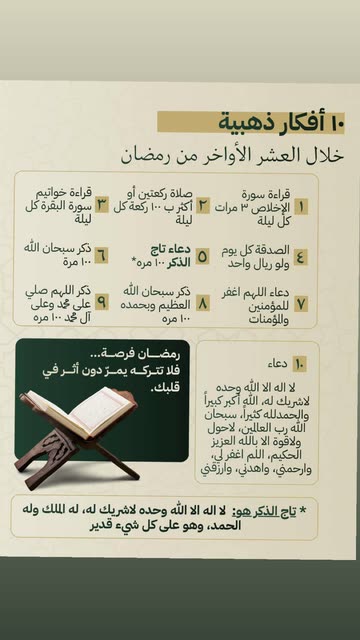 ١٠ أفكار ذهبية
خلال العشر الأواخر من رمضان
١
قراءة سورة
الإخلاص ٣ مرات
كل ليلة
٢
صلاة ركعتين أو
أكثر ب ١٠٠ ركعة كل
ليلة
٣
قراءة خواتيم
سورة البقرة كل
ليلة
٤
الصدقة كل يوم
ولو ريال واحد
٥
دعاء تاج
الذكر ١٠٠ مره*
٦
ذكر سبحان الله
١٠٠ مرة
٧
دعاء اللهم اغفر
للمؤمنين
والمؤمنات
٨
ذكر سبحان الله
العظيم وبحمده
١٠٠ مره
٩
ذكر اللهم صلي
على محمد وعلى
آل محمد ١٠٠ مره
١٠ دعاء
لا اله الا الله وحده
لاشريك له، الله أكبر كبيراً
والحمدلله كثيراً، سبحان
الله رب العالمين، لاحول
ولاقوة الا بالله العزيز
الحكيم، اللم اغفر لي،
وارحمني، واهدني، وارزقني
رمضــان فرصــة...
فلا تتـركــه يمــرّ دون أثــر في
قلبك.
* تاج الذكر هو: لا اله الا الله وحده لاشريك له، له الملك وله
الحمد، وهو على كل شيء قدير